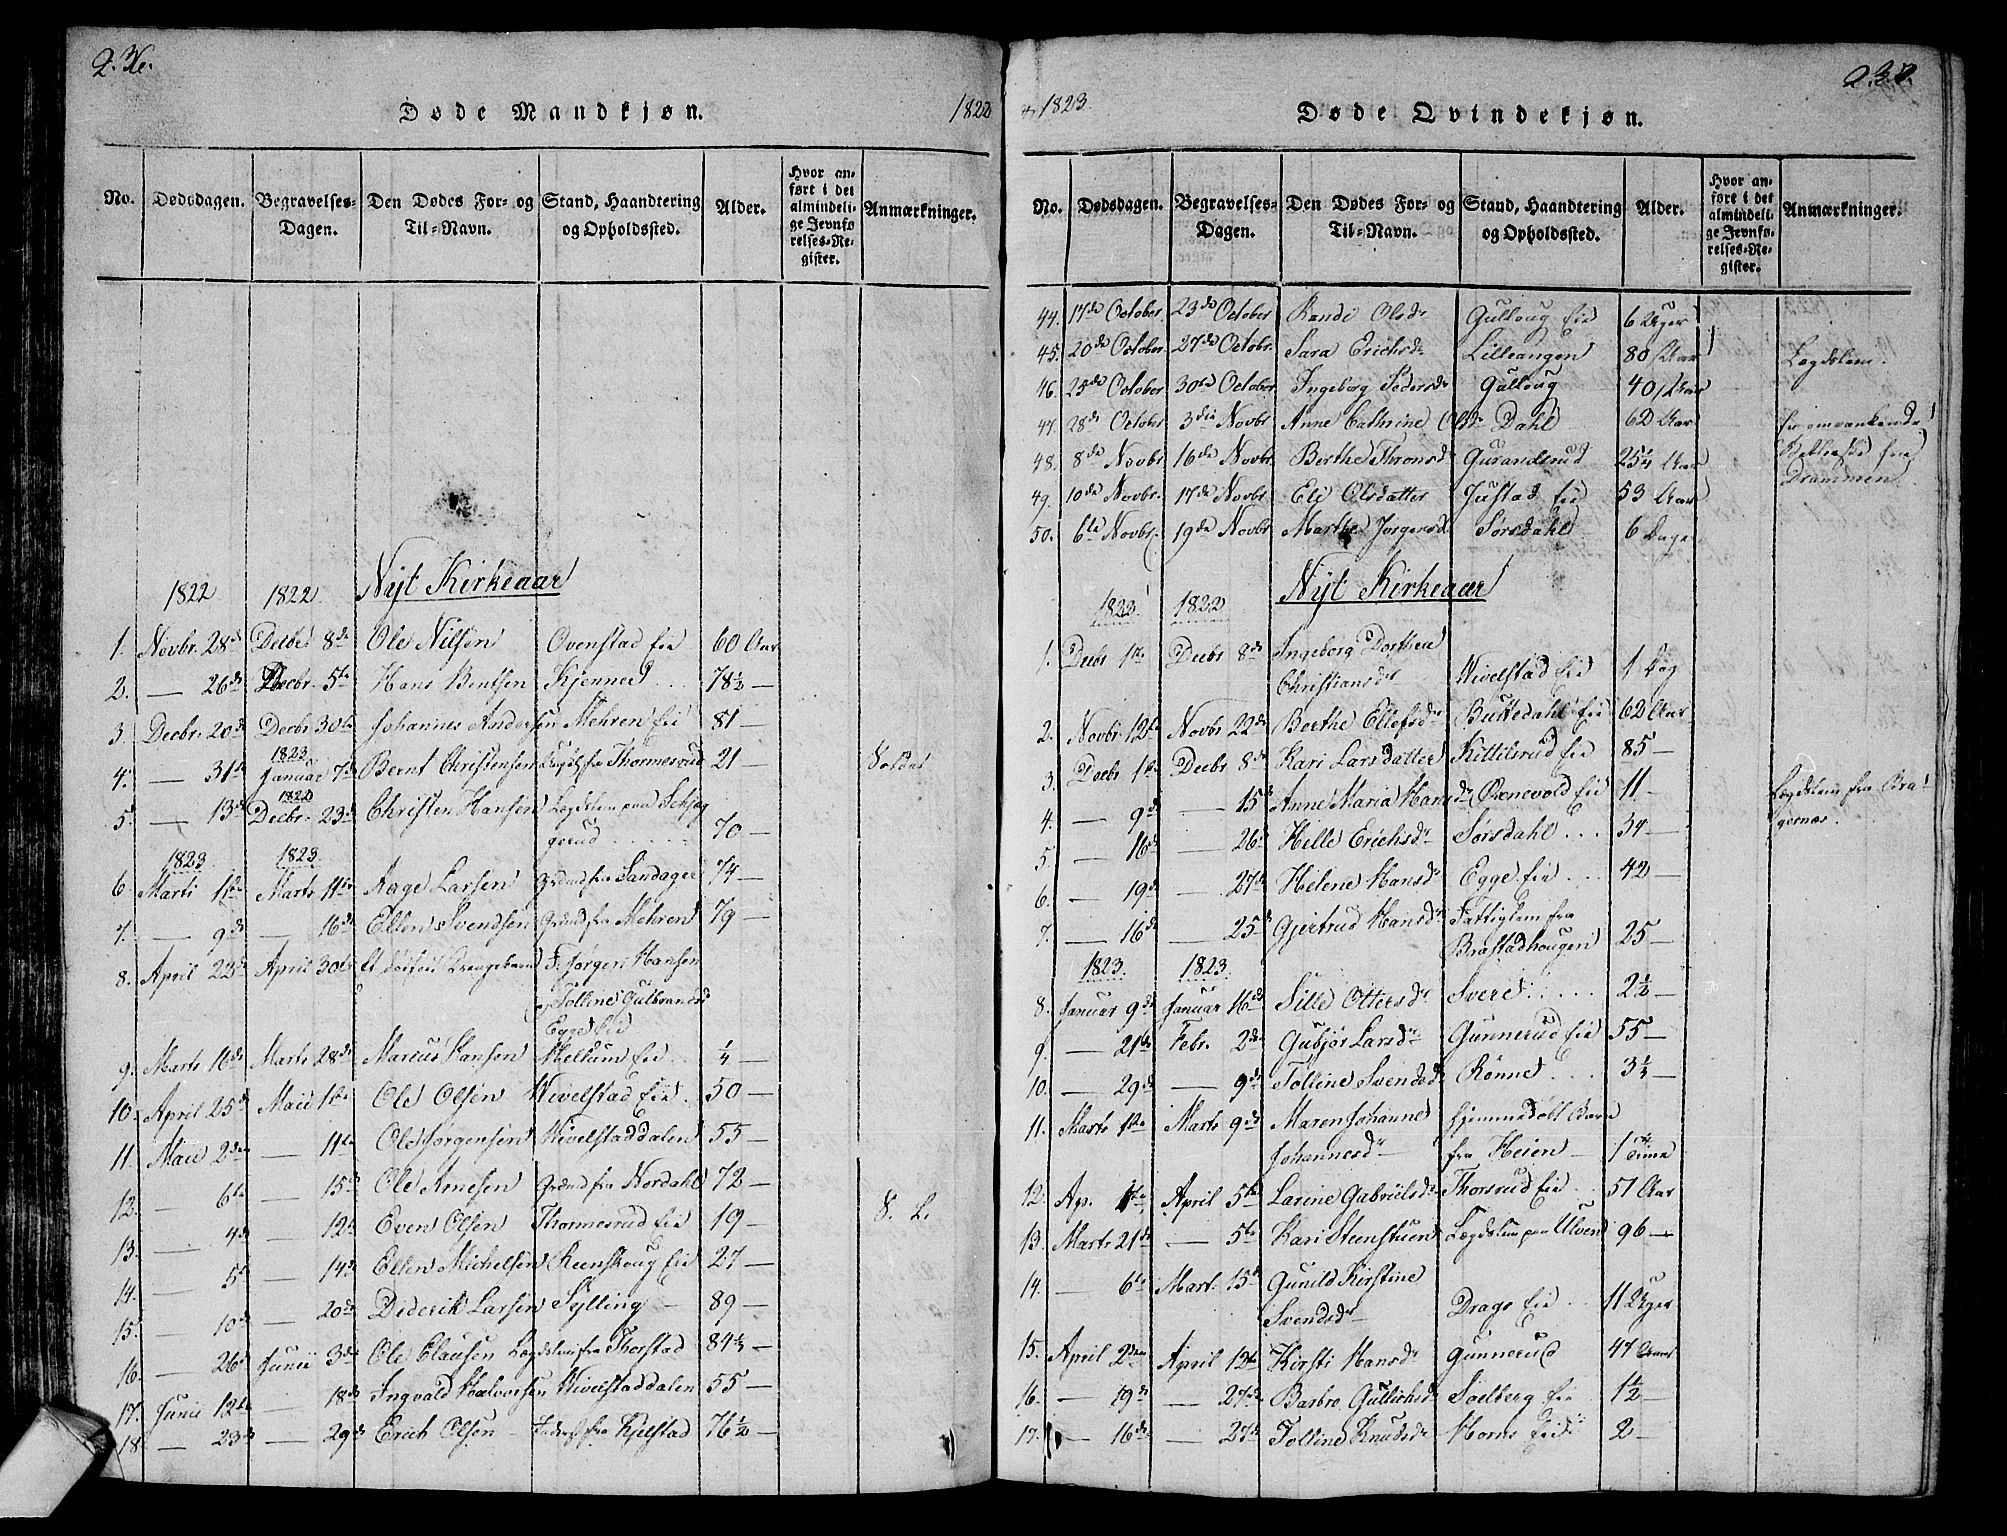 236.
Døde Mandkjøn.
1822
No. Dødsdagen. Begravelses-Dagen. Den Dødes For- og Til-Navn. Stand, Haandtering og Opholdssted. Alder. Hvor anført i det almindelige Jevnførelses-Register. Anmærkninger.
Nyt Kirkeaar
1822 1822
1. Novbr. 28de Decbr 8de Ole Nilsen Ovenstad Eie 60 Aar
2. — 26de Decbr. 5te Hans Bentsen Kjenner 78½ —
3. Decbr. 20de Decbr 30te Johannes Andersen Mehren Eie 81 —
1823
4. — 31te Januar 7de Bernt Christensen fra Thormesrud 21 — Soldat
1822
5. — 13de Decbr. 23de Christen Hansen Lægdslem paa
70 —
1823 1823
6. Marti 1te Marts 11te Aage Larsen fra Sandager 74 —
7. — 9de — 16de Ellen Svendsen fra Mehren 79 —
8. April 22de April 30te et dødfødt Drengebarn F. Jørgen Hansen
Tolline Gulbrandsd
Egge Eie
9. Marts 16de Marts 28de Marius Hansen Mellum Eie ¼ —
10. April 25de Maii 1te Ole Olsen Wivelstad Eie 50 —
11. Maii 2den — 11te Ole Jørgensen Wivelstaddalen 55 —
12. — 6te — 15de Ole Arnesen fra Nordahl 72 —
13. — 4de — 12te Even Olsen Thormesrud Eie 19 — S. L.
14. — 5te — 14de Ellen Michelsen Reenskoug Eie 27 —
15. — 10de — 20de Diderik Larsen Sylling 89 —
16. — 26de Junii 3de Ole Clausen Lægdslem fra Thorstad 84½ —
17. Junii 12te — 18de Ingvald Halvorsen Wivelstaddalen 55 —
18 — 23de — 29de Erich Olsen fra Kjelstad 76½ —
237.
1823
Døde Qvindekjøn.
No. Dødsdagen. Begravelses-Dagen. Den Dødes For- og Til-Navn. Stand, Haandtering og Opholdssted. Alder. Hvor anført i det almindelige Jevnførelses-Register. Anmærkninger.
44. 17de October 23de October Rande Olsdr Gulloug Eie 6 Uger
45. 20de October 27de Octobr. Sara Erichsdr Lilleangen 80 Aar Lægdslem.
46. 25de October 30te October Ingeborg Pedersdr Gulloug 40 Aar
47. 28de October 3die Novbr Anne Cathrine Olsdr Dahl 62 Aar En omvankende
48. 8de Novbr 16de Novbr. Berthe Thronsdr Gurandsrud 25¼ Aar fra
49. 10de Novbr. 17de Novbr Eli Olsdatter Justad Eie 53 Aar Drammen
50. 6te Novbr. 19de Novbr Marthe Jørgensd Sørsdahl 6 Dage
Nyt Kirkeaar
1822 1822
1. Decbr 1te Decbr 8de Ingeborg Dorthea
Christiansdr Wivelstad Eie 1 Dag
2. Novbr 12te Novbr 22de Berthe Ellefsdr Buttedahl Eie 62 Aar
3. Decbr 1te Decbr 8de Kari Larsdatter Kittilsrud Eie 85 —
4. — 9de — 15de Anne Maria Hansdr Ørnevold Eie 11 — Lægdslem fra Bragernæs.
5. — 16de — 26de Helle Erichsdr Sørsdahl 34 —
6. — 19de — 27de Helene Hansdr Egge Eie 42 —
7. — 16de — 25de Gjertrud Hansdr Fattiglem fra
Brastadhougen 25 —
1823. 1823.
8. Januar 9de Januar 16de Sille Ottersdr Svere 2½ —
9. — 21de Febr. 2den Gubjør Larsdr Gunnerud Eie 55 —
10. — 29de — 9de Tolline Svendsdr Rønne 3¼ —
11. Marts 1te Marts 9de Maren Johanne hjemmedøbt Barn
Johannesdr fra Heien 1 Time
12. Ap. 1te April 5te Larine Gabrielsdr Thorsrud Eie 51 Aar
13. Marts 21de — 5te Kari Steenstuen Lægdslem paa Ulven 96 —
14. — 6te Mart. 15de Gunild Kirstine
Svendsdr Drags Eie 11 Uger
15. April 2den April 12te Kirsti Hansdr Gunnerud 47 Aar
16. — 19de — 27de Barbro Gullichsdr Solberg Eie 1½ —
17. — 16de — 27de Tolline Knudsdr Horns Eie 2 —